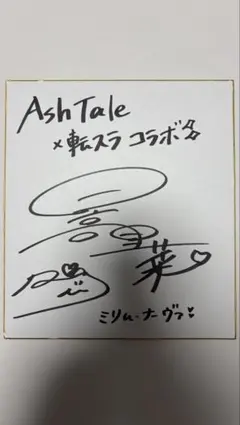 AshTale
×転スラ コラボ☆
日高里菜♡
ミリム・ナーヴァ♡